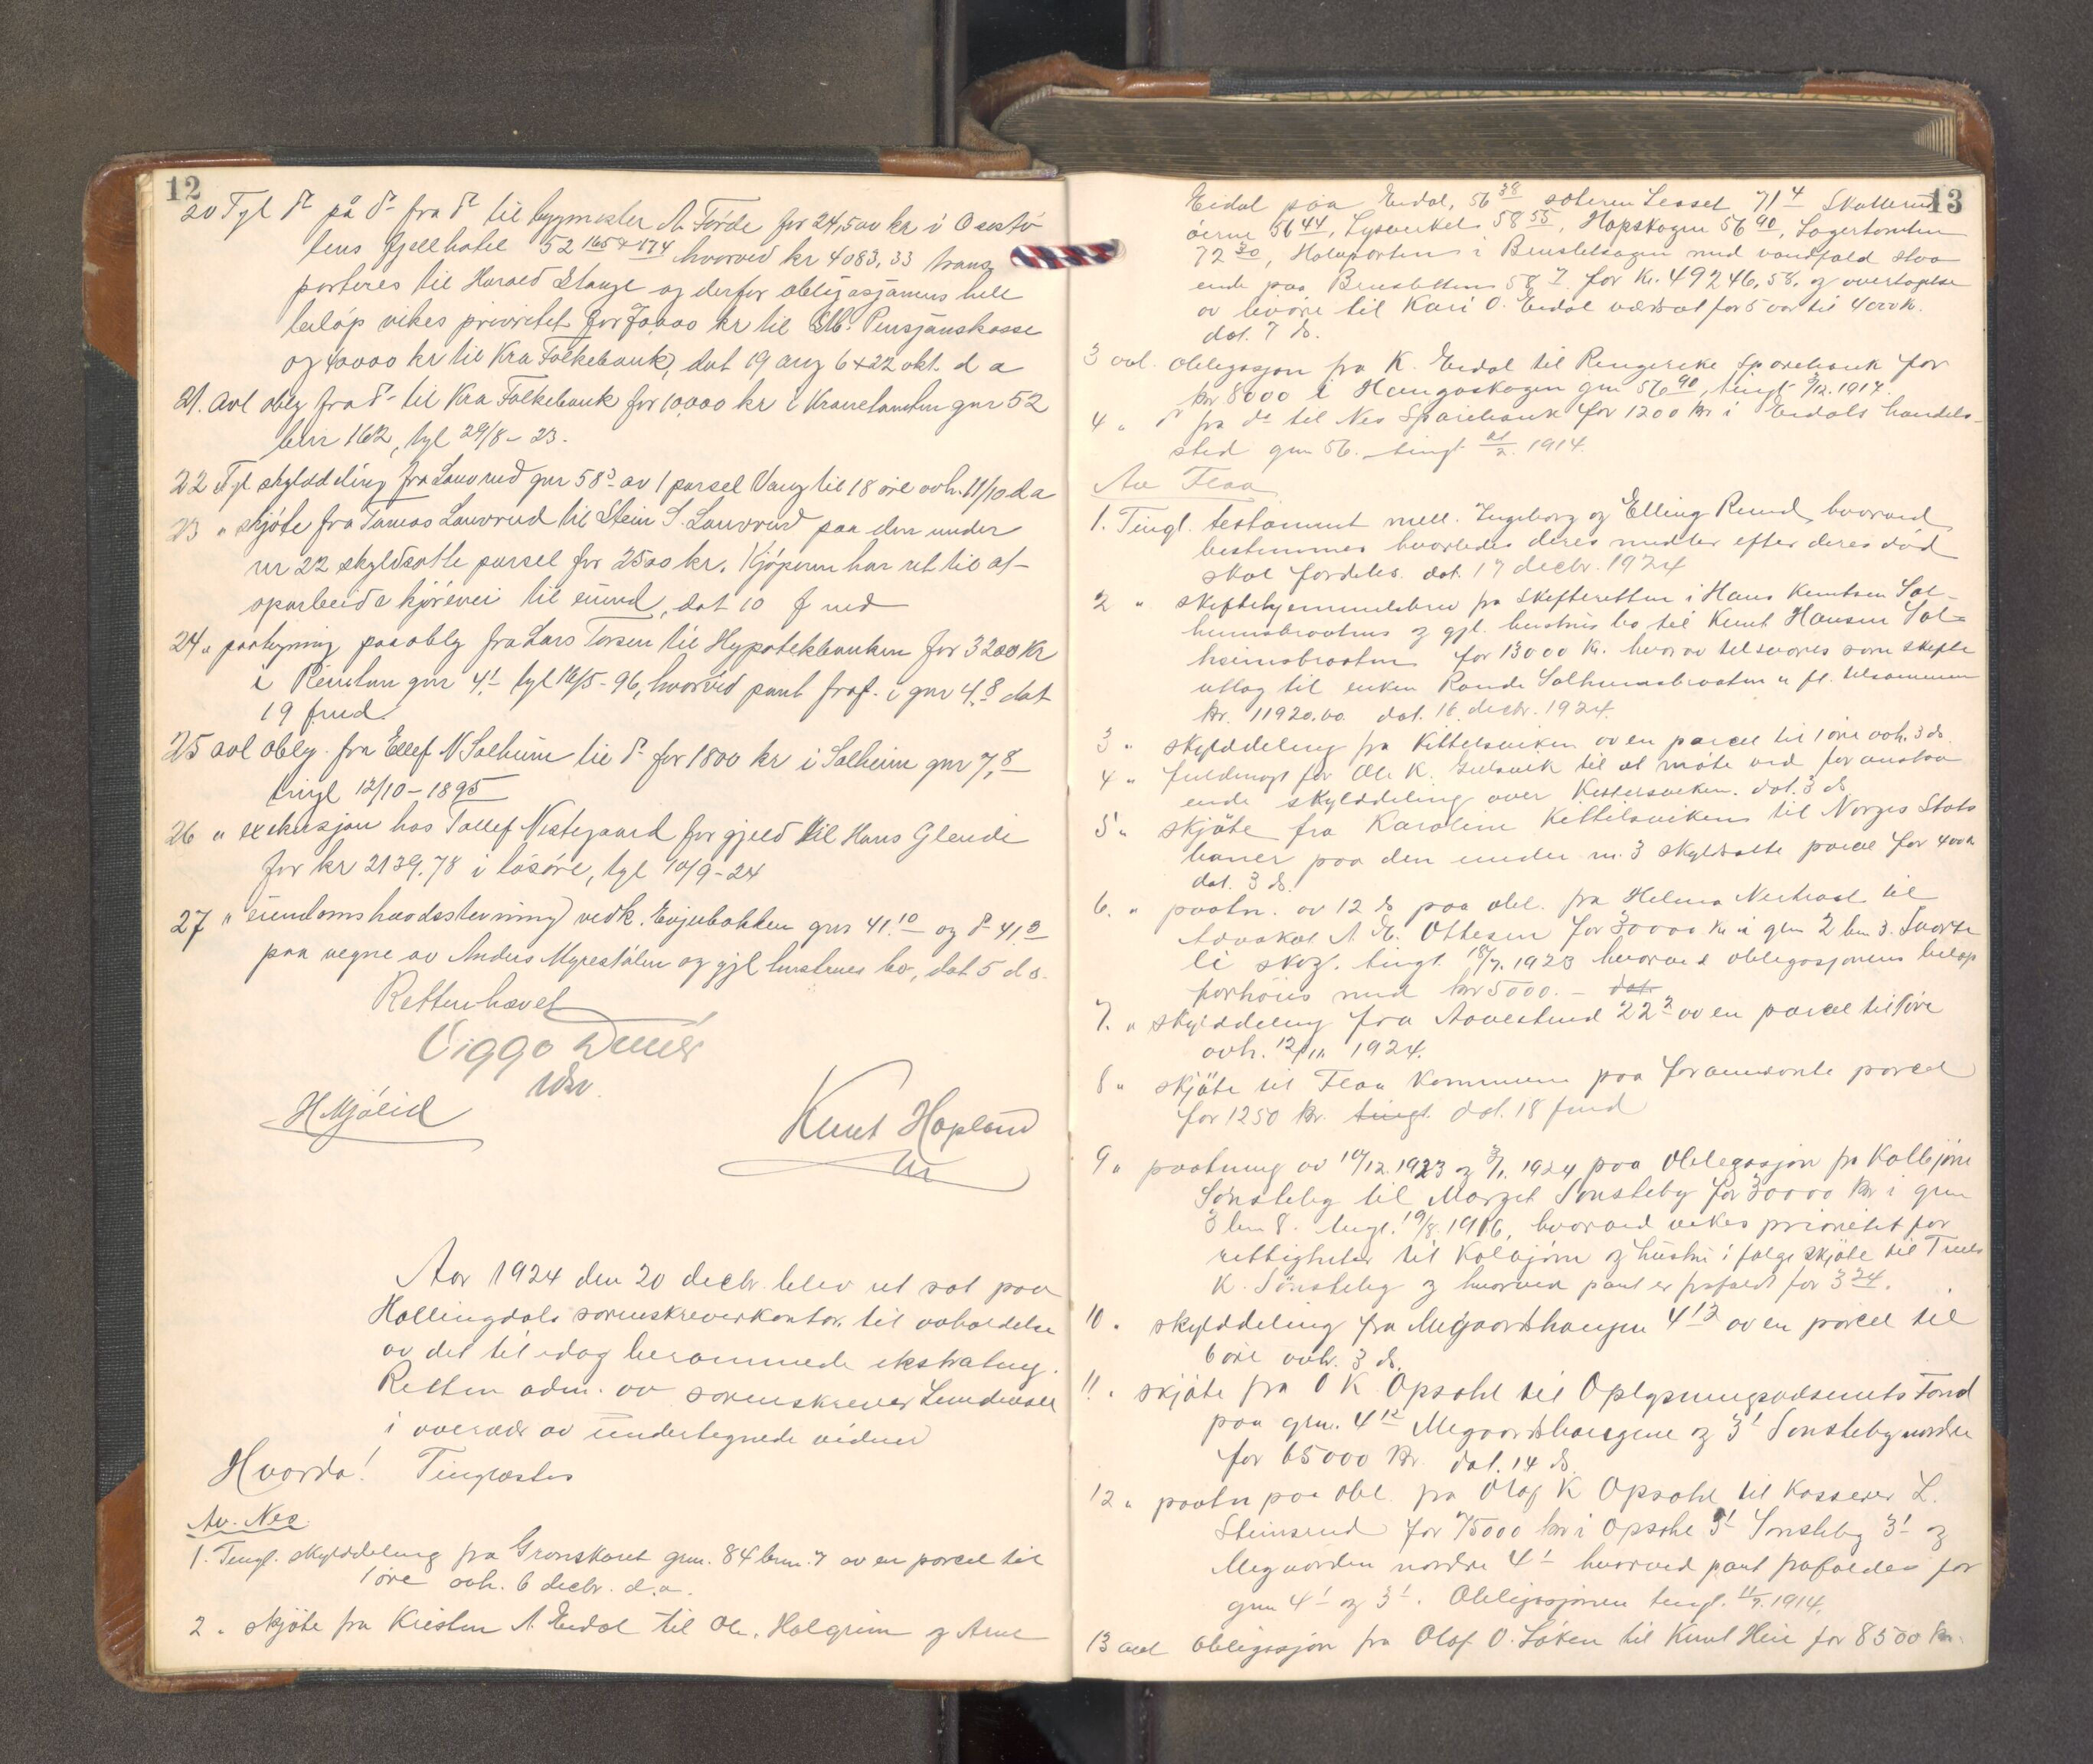 12
20 Tgl do på do fra do til byggmester A. Förde for 24,500 kr i Osestö
lens fjellhotel 52 165 & 174 hvorved kr 4083,33 trans
porteres til Harald Stange og derfor obligasjonens hele
beløp vikes prioritet for 70,000 kr til Pensjonskasse
og 40000 kr til Kra Folkebank, dat 19 aug 6 & 22 okt. d a
21. avl oblg fra do til Kra Folkebank for 10,000 kr i gnr 52
bnr 162, tgl 29/8 - 23.
22 Tgl skylddeling fra Lauvrud gnr 58 3 av 1 parsel Vang til 18 øre avh. 11/10 d a
23 " skjøte fra Tomas Lauvrud til Stein S. Lauvrud paa den under
nr 22 skyldsatte parsel for 2500 kr. Kjøperen har ret til at
oparbeide kjørevei til eiend, dat 10 f md
24 " paategning paa oblg fra Lars Torsen til Hypotekbanken for 3200 Kr
i gnr 4.1 tgl 16/5 - 96, hvorved pant fraf. i gnr 4.8 dat
19 f.md.
25 avl oblg. fra Ellef N Solheim til do for 1800 kr i Solheim gnr 7,8
tingl 12/10 - 1895
26 " exekusjon hos Tollef Nestegaard for gjeld til Hans Glende
for kr 2139.78 i løsøre, tgl 10/9 - 24
27 " eiendomshævdsstevning vedk. Evjubakken gnr 41.10 og do 41.9
paa vegne av Anders Myrestølen og gjl hustrues bo, dat 5 d s.
Retten hævet
Viggo
H Mjölid
Knut Hoplund
Aar 1924 den 20 decbr. blev ret sat paa
Hallingdals sorenskriverkontor til avholdelse
av det til idag berammede ekstrating.
Retten adm. av sorenskriver Lundevall
i overvær av undertegnede vidner
Hvorda! Tinglæstes
Av. Nes
1. Tingl. skylddeling fra Grønskaret gnr. 84 bnr. 7 av en parcel til
1 øre avh. 6 decbr. d.a.
2. " skjøte fra Kristen A. Eidal til Ole, Halgrim og Arne
13
Eidal paa Eidal, 56 38 sæteren Lesset 71 4 Skatterud
øerne 56 44, Lysverket 58 55, Hopskogen 56 90, Lagertomten
72 30, Halvparten i Bruslettsagen med vandfald staa
ende paa Brusletten 58 7 for kr. 49246,58, og overtagelse
av livøre til Kari O. Eidal værdsat for 5 aar til 4000 k.
dat. 7 ds.
3 avl. obligasjon fra K. Eidal til Ringerike Sparebank for
kr 8000 i gnr 56 90, tingl. 3/12. 1917.
4 " do fra do til Nes Sparebank for 1200 kr i Eidals handels-
sted gnr 56. tingl. 21/2. 1914.
Av Flaa
1. Tingl. testament mell. Ingeborg og Elling Rund, hvorved
bestemmes hvorledes deres midler efter deres død
skal fordeles. dat. 17 decbr. 1924
2 " skiftehjemmelsbrev fra Skifteretten i Hans Knutsen Sol-
heimsbraatens og gjl. hustrus bo til Knut Hansen Sol-
heimsbraaten for 13000 kr. hvorav tilsvares som skifte
utlæg til enken Ronde Solheimsbraaten m fl. tilsammen
kr. 11920.00. dat. 16. decbr. 1924.
3 " skylddeling fra Kittelsviken av en parcel til 1 øre avh. 3 ds.
4 " fuldmagt for Ole K. Gulsvik til at møte ved foranstaa
ende skylddeling over Kittelsviken. dat. 3 ds
5 " skjøte fra Karoline Kittilsviken til Norges Stats
baner paa den under nr. 3 skyldsatte parcel for 400 kr
dat. 3 ds.
6. " paatn. av 12 ds paa obl. fra Helma Nertrost til
Advokat A. Ottesen for 30000 kr i gnr 2 bnr 3. Svarte
li skog. tingl. 18/7. 1923 hvorved obligasjonens beløp
forhøies med kr 5000. - dat.
7. " skylddeling fra Aavestrud 22 2 av en parcel til 1 øre
avh. 12/11 1924.
8 " skjøte til Flaa Kommune paa forannævnte parcel
for 1250 kr. tingl. dat. 18 f md
9 " paatning av 19/12. 1923 og 3/1. 1924 paa Obligasjon fra Kolbjørn
Sønsteby til Margit Sønsteby for 30000 kr i gnr
3 bnr 8. tingl. 19/8. 1916, hvorved vikes prioritet for
rettigheter til Kolbjørn og hustru i følge skjøte til Truls
K. Sønsteby og hvorved pant er frafaldt for 3 24.
10 " skylddeling fra Megaardshaugen 4 12 av en parcel til
6 øre avh. 3 ds.
11 " skjøte fra O K Opsahl til Oplysningsvæsenets Fond
paa gnr. 4 12 Megaardshaugene og 3 1 Sønsteby nordre
for 65000 kr. dat. 14 ds.
12 " paatn paa obl. fra Olaf K Opsahl til Kasserer L.
Steinsrud for 75000 kr i Opsahl 5 1 Sønsteby 3 1 og
Megaarden nordre 4 1 hvorved pant frafaldes for
gnr 4 1 og 3 1. Obligasjonen tingl. 11/7. 1914.
13 avl obligasjon fra Olaf O. Løken til Knut Heie for 8500 kr.